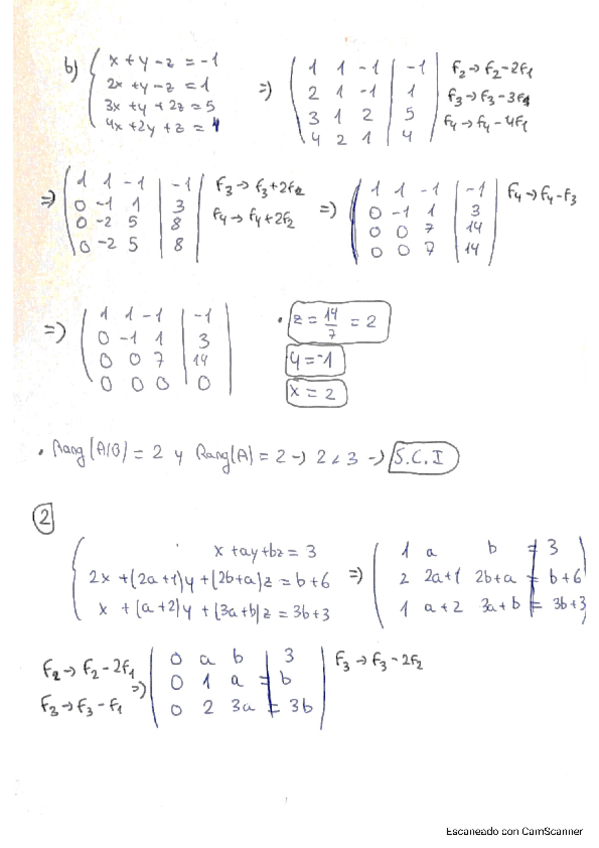 b) { x + y - z = -1
2x + y - z = 1
3x + y + 2z = 5
4x + 2y + z = 4
=> ( 1 1 -1 | -1
2 1 -1 | 1
3 1 2 | 5
4 2 1 | 4 )
F2 → F2 - 2F1
F3 → F3 - 3F1
F4 → F4 - 4F1
=> ( 1 1 -1 | -1
0 -1 1 | 3
0 -2 5 | 8
0 -2 5 | 8 )
F3 → F3 + 2F2
F4 → F4 + 2F2
=> ( 1 1 -1 | -1
0 -1 1 | 3
0 0 7 | 14
0 0 7 | 14 )
F4 → F4 - F3
=> ( 1 1 -1 | -1
0 -1 1 | 3
0 0 7 | 14
0 0 0 | 0 )
• z = 14/7 = 2
y = -1
x = 2
• Rang(A|B) = 2 y Rang(A) = 2 → 2 < 3 → S.C.I
2
{ x + ay + bz = 3
2x + (2a+1)y + (2b+a)z = b+6
x + (a+2)y + (3a+b)z = 3b+3
=> ( 1 a b = 3
2 2a+1 2b+a = b+6
1 a+2 3a+b = 3b+3 )
F2 → F2 - 2F1
F3 → F3 - F1
=> ( 0 a b | 3
0 1 a = b
0 2 3a = 3b )
F3 → F3 - 2F2
Escaneado con CamScanner